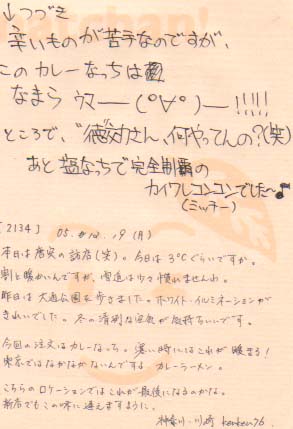 ↓つづき
辛いものが苦手なのですが、
このカレーなっちは
なまら ウマー(°∀°)ー!!!!!
ところで、"徳効さん、何やってんの?(笑)
あと塩なっちで完全制覇の
カイワレコンコンでした〜♪
(ミッチー)
[2134] 05. 12. 19 (月)
本日は 訪店(笑)。今日は3℃ぐらいですか。
割と暖かいんですが、雪道は少々慣れませんね。
昨日は大通公園を歩きました。ホワイト・イルミネーションが
きれいでした。冬の清冽な空気が気持ちいいです。
今回の注文はカレーなっち。寒い時にはこれが暖まる!
東京ではなかなかないんですよ カレーラーメン。
こちらのロケーションではこれが最後になるのかな。
新店でもこの味に逢えますように。
神奈川・川崎 kenken76